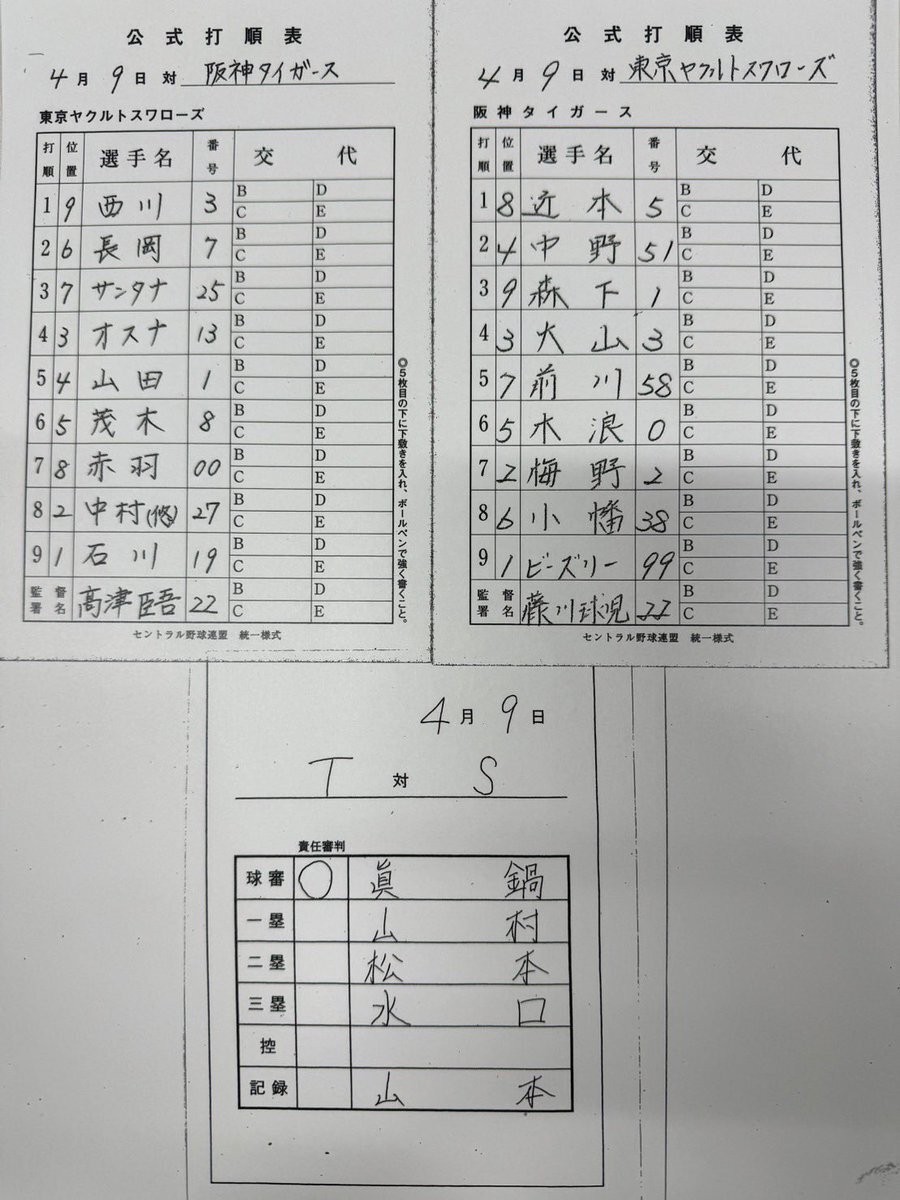 公式打順表
4月9日対 阪神タイガース
東京ヤクルトスワローズ
打順 位置 選手名 番号 交代
1 9 西川 3 B D C E
2 6 長岡 7 B D C E
3 7 サンタナ 25 B D C E
4 3 オスナ 13 B D C E
5 4 山田 1 B D C E
6 5 茂木 8 B D C E
7 8 赤羽 00 B D C E
8 2 中村(悠) 27 B D C E
9 1 石川 19 B D C E
監督署名 高津臣吾 22 B D C E
◎5枚目の下に下敷きを入れ、ボールペンで強く書くこと。
セントラル野球連盟 統一様式
公式打順表
4月9日対 東京ヤクルトスワローズ
阪神タイガース
打順 位置 選手名 番号 交代
1 8 近本 5 B D C E
2 4 中野 51 B D C E
3 9 森下 1 B D C E
4 3 大山 3 B D C E
5 7 前川 58 B D C E
6 5 木浪 0 B D C E
7 2 梅野 2 B D C E
8 6 小幡 38 B D C E
9 1 ビーズリー 99 B D C E
監督署名 藤川球児 22 B D C E
◎5枚目の下に下敷きを入れ、ボールペンで強く書くこと。
セントラル野球連盟 統一様式
4月9日
T 対 S
責任審判
球審 ○ 眞鍋
一塁 山村
二塁 松本
三塁 水口
控
記録 山本